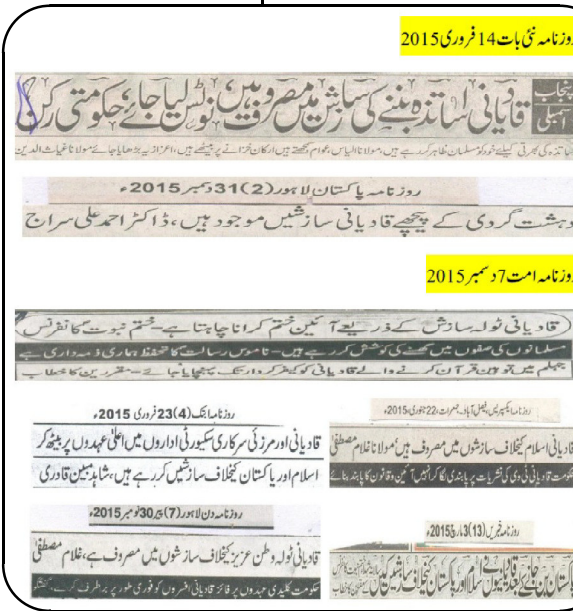 روزنامہ نئی بات 14 فروری 2015
پنجاب اسمبلی
قادیانی اساتذہ بننے کی سازش میں مصروف ہیں نوٹس لیا جائے، حکومتی رکن
اساتذہ کی بھرتی کیلئے خود کو مسلمان ظاہر کر رہے ہیں، مولانا الیاس، عوام سمجھتے ہیں ارکان خزانے پر بیٹھے ہیں، اعزازیہ بڑھایا جائے مولانا غیاث الدین
روزنامہ پاکستان لاہور (2) 31 دسمبر 2015ء
دہشت گردی کے پیچھے قادیانی سازشیں موجود ہیں، ڈاکٹر احمد علی سراج
روزنامہ امت 7 دسمبر 2015
قادیانی ٹولہ سازش کے ذریعے آئین ختم کرانا چاہتا ہے - ختم نبوت کانفرنس
مسلمانوں کی صفوں میں گھسنے کی کوشش کر رہے ہیں - ناموس رسالت کا تحفظ ہماری ذمہ داری ہے
جہلم میں توہین قرآن کرنے والے قادیانی کو کیفر کردار تک پہنچایا جائے - مقررین کا خطاب
روزنامہ جنگ (4) 23 فروری 2015ء
قادیانی اور مرزئی سرکاری سکیورٹی اداروں میں اعلیٰ عہدوں پر بیٹھ کر
اسلام اور پاکستان کیخلاف سازشیں کر رہے ہیں، شاہد مبین قادری
روزنامہ ایکسپریس، فیصل آباد، جمعرات، 22 جنوری 2015ء
قادیانی اسلام کیخلاف سازشوں میں مصروف ہیں، مولانا غلام مصطفیٰ
حکومت قادیانی ٹی وی کی نشریات پر پابندی لگا کر انہیں آئین و قانون کا پابند بنائے
روزنامہ دن لاہور (7) پیر 30 نومبر 2015ء
قادیانی ٹولہ وطن عزیز کیخلاف سازشوں میں مصروف ہے، غلام مصطفیٰ
حکومت کلیدی عہدوں پر فائز قادیانی افسروں کو فوری طور پر برطرف کرے، گفتگو
روزنامہ خبریں (13) 3 مارچ 2015ء
پاکستان بن جانے کے بعد قادیانیوں نے اسلام اور پاکستان کیخلاف سازشیں کیں